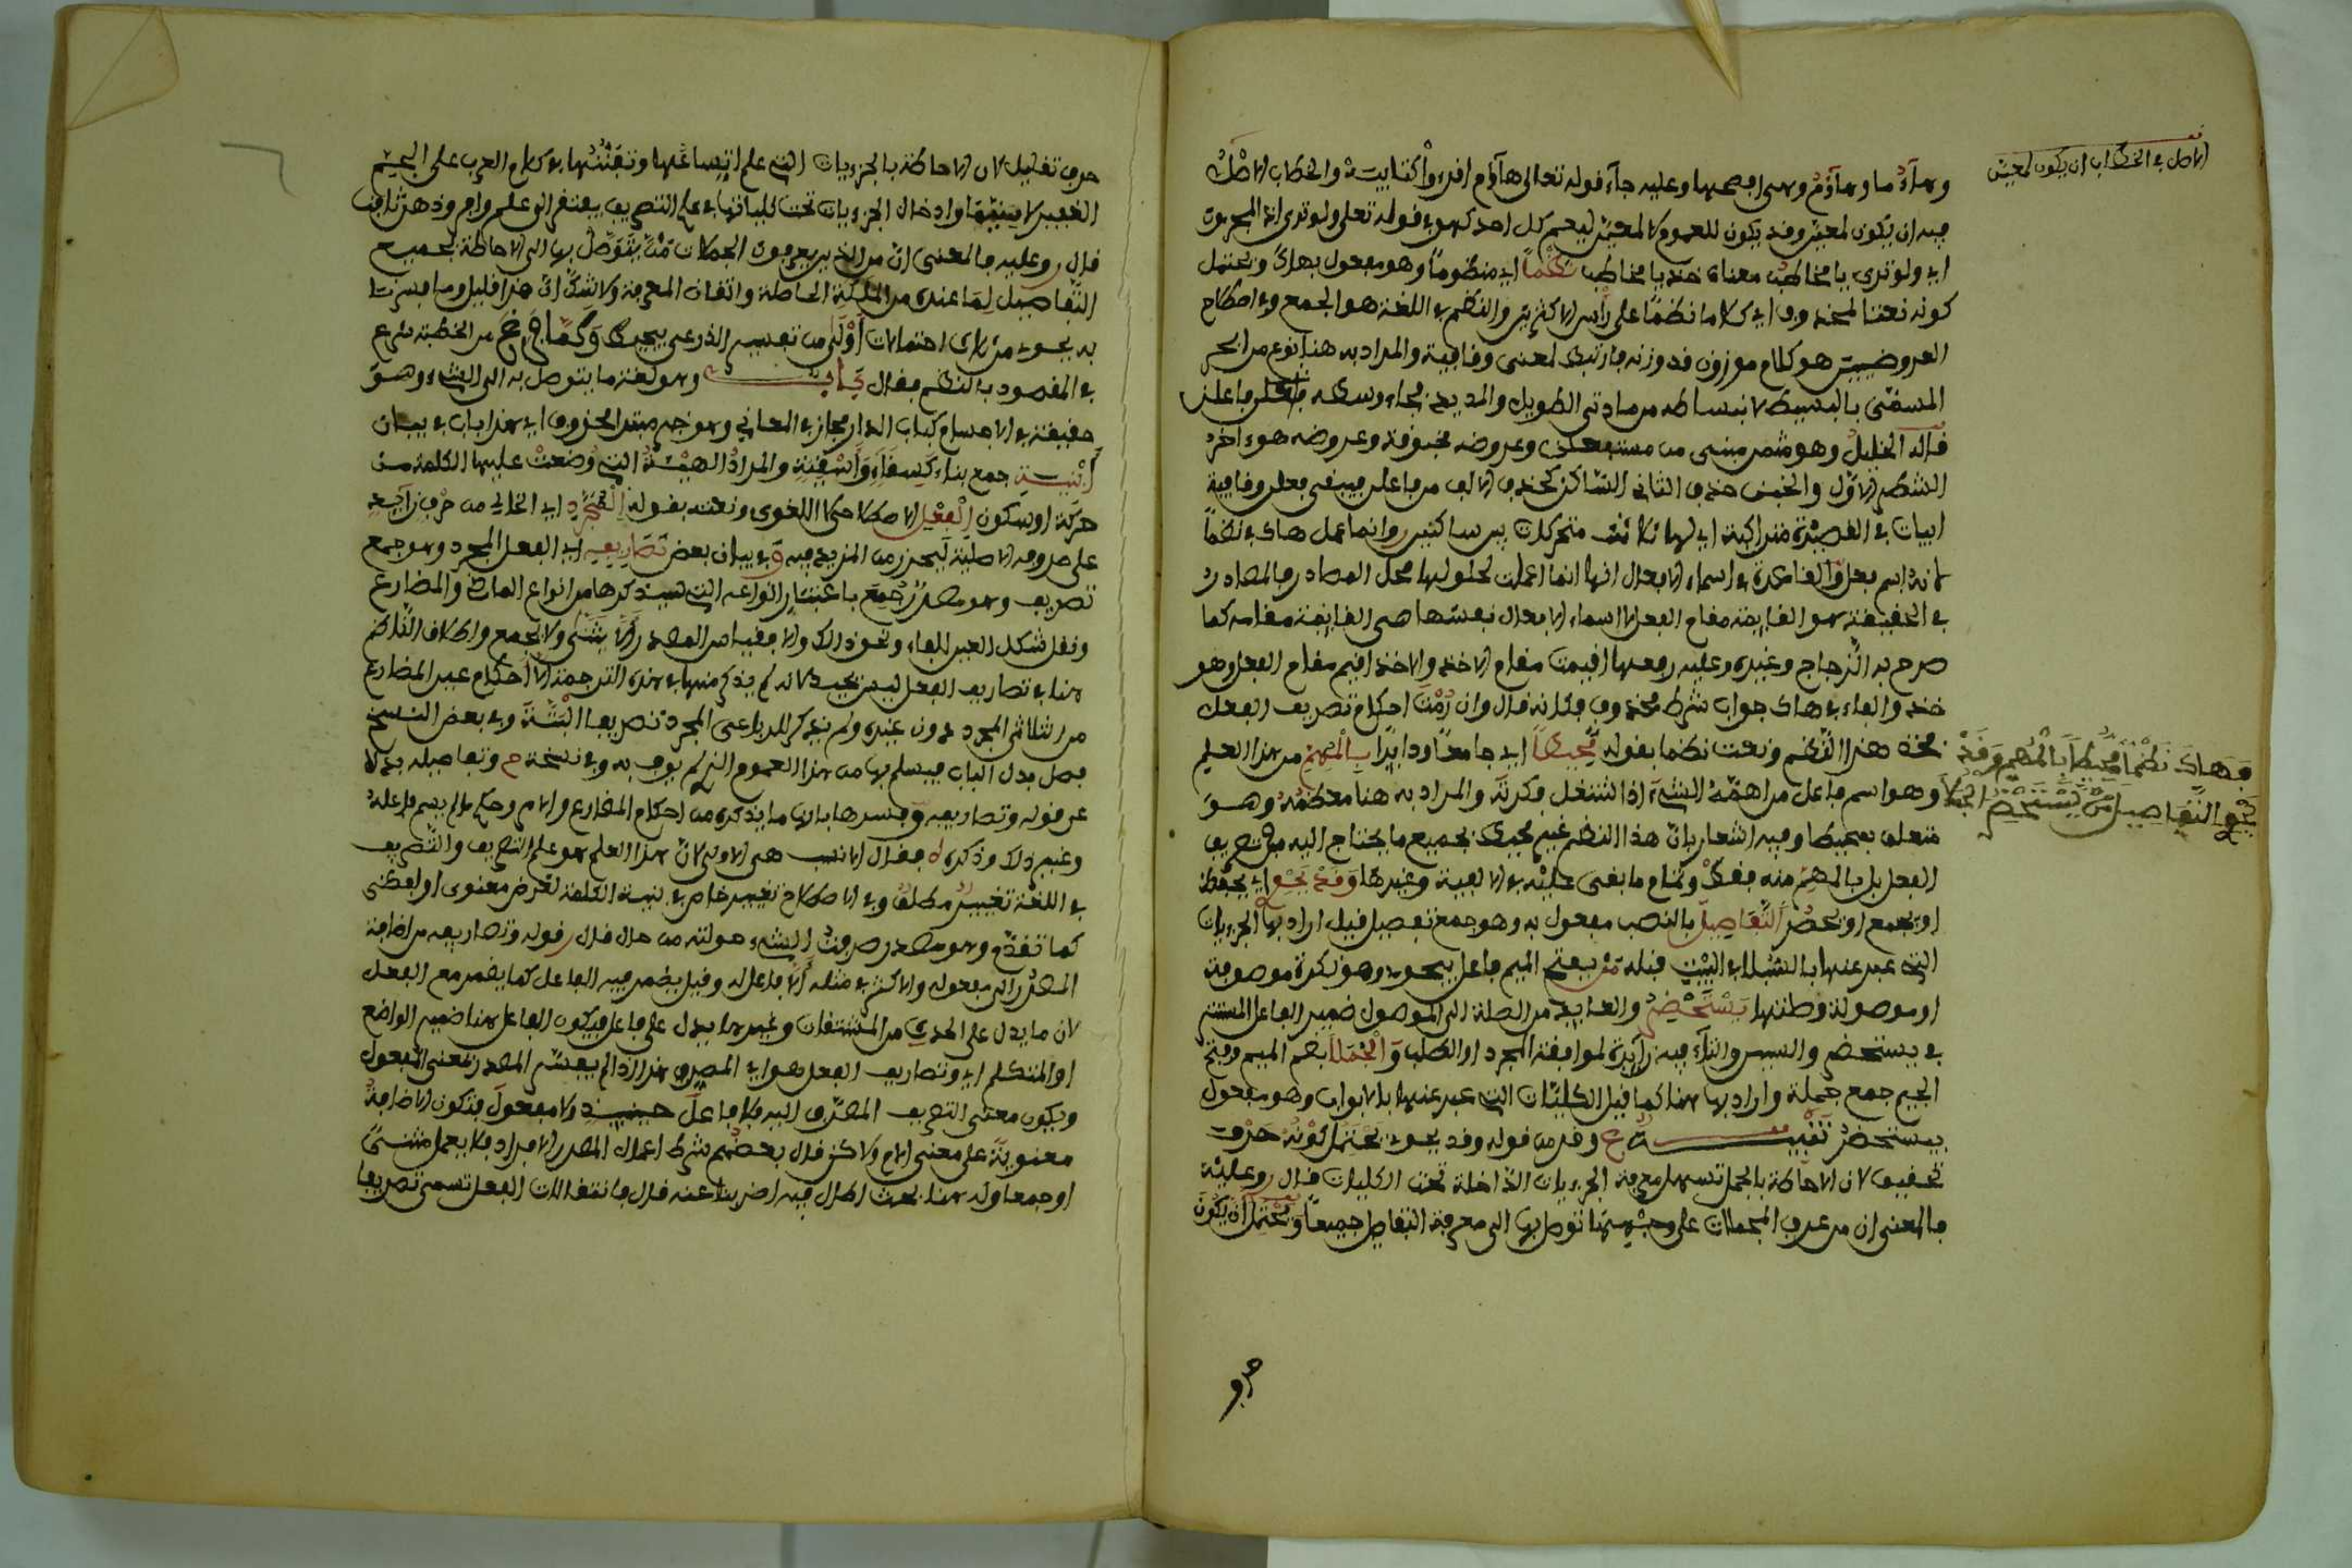 الاصل في الخطاب ان يكون لمعين
وهاؤما وهاؤم وهي افصحها وعليه جاء قوله تعالى هاؤم اقرءوا كتابيه والخطاب الاصل
فيه ان يكون لمعين وقد يكون للعموم لا لمعين ليعم كل احد كهو في قوله تعلى ولو ترى اذ المجرمون
اي ولو ترى يا مخاطب معناه خذ يا مخاطب نظما اي منظوما وهو مفعول بهاك ويحتمل
كونه نعتا لمحذوف اي كلاما نظما على رأس الاكثرين والنظم في اللغة هو الجمع وفي اصطلاح
العروضيين هو كلام موزون قد وزنه فارتبط لمعنى وقافية والمراد به هنا نوع من البحر
المسمى بالبسيط لانبساطه من مادتي الطويل والمديد
قاله الخليل وهو مثمن مبني من مستفعلن وعروضه مخبونة وعروضه هو اخر
الشطر الاول والخبن حذف الثاني الساكن كحذف الالف من فاعلن فيبقى فعلن وقافية
ابيات في القصيدة متراكبة اي لها ثلاثة متحركات بين ساكنين وانما عمل هاك في نظما
لانه اسم فعل والقاعدة في اسماء الافعال انها انما اعملت لحلولها محل المصادر فالمصادر
في الحقيقة هو القايمة مقام الفعل لا اسماء الافعال نفسها هي القايمة مقامه كما
صرح به الزجاج وغيره وعليه فعلها اقيمت مقام الاخذ والاخذ اقيم مقام الفعل وهو
خذ والفاء في هاك جواب شرط محذوف فكانه قال وان رمت احكام تصريف الفعل
فهاك نظما محيطا بالمهم وقد
يحوي التفاصيل من يستحضر الجملا
فخذ هذا النظم ونعت نظما بقوله محيطا اي جامعا ودايرا بالمهم من هذا العلم
وهو اسم فاعل من اهمه الشيء اذا اشتغل فكرته والمراد به هنا معظمه وهو
متعلق بمحيطا وفيه اشعار بان هذا النظم غير محيط بجميع ما يحتاج اليه من تصريف
الفعل بل بالمهم منه فقط وتمام ما بقى عليه في الالفية وغيرها وقد يحوي اي يحفظ
او يجمع او يحضر التفاصيل بالنصب مفعول به وهو جمع تفصيل قيل اراد بها الجزءيات
التي عبر عنها بالسبل في البيت قبله من بفتح الميم فاعل يحوي وهو نكرة موصوفة
او موصولة وصلتها يستحضر والعايد من الصلة الى الموصول ضمير الفاعل المستتر
في يستحضر والسين والتاء فيه زايدة لموافقة المجرد او الطلب والجملا بضم الميم وفتح
الجيم جمع جملة واراد بها هنا كما قيل الكليات التي عبر عنها بالابواب وهو مفعول
بيستحضر تنبيه ع وقد من قوله وقد يحوي يحتمل كونه حرف
تحقيق لان الاحاطة بالجمل تسهل معرفة الجزءيات الداخلة تحت الكليات قال وعليه
فالمعنى ان من عرف المجملات على وجهها توصل بها الى معرفة التفاصيل جميعا ويحتمل ان يكون
حرف
حرف تقليل لان الاحاطة بالجزءيات التي على اتساعها وتفننها في كلام العرب على البحر
قال وعليه فالمعنى ان من الذين يعرفون الجملات من يتوصل بها الى الاحاطة بجميع
التفاصيل لما عنده من الملكة الحاصلة واتقان المعرفة ولا شك ان هذا قليل
في المقصود بالنظم فقال باب وهو لغة ما يتوصل به الى الشيء وهو
حقيقة في الاجسام كباب الدار مجاز في المعاني وهو خبر مبتدا محذوف اي هذا باب في بيان
أبنية جمع بناء ككساء وأكسية والمراد الهيئة التي وضعت عليها الكلمة من
حركة او سكون الفعل الاصطلاحي لا اللغوي ونعته بقوله المجرد اي الخالي من حرف زايد
على حروفه الاصلية ليحترز من المزيد فيه و في بيان بعض تصاريفه اي الفعل المجرد وهو جمع
تصريف وهو مصدر جمع باعتبار انواعه التي سيذكرها من انواع الماضي والمضارع
ونقل شكل العين للفاء ونحو ذلك والا فقياس المصدر ألا يثنى ولا يجمع
هنا في تصاريف الفعل ليس بجيد لانه لم يذكر منها في هذه الترجمة الا احكام عين المضارع
من الثلاثي المجرد دون غيره ولم يذكر للرباعي المجرد تصريفا البتة وفي بعض النسخ
فصل بدل الباب فيسلم بها من هذا العموم الذي لم يوف به وفي نسخة ح وتفاصيله بدلا
عن قوله وتصاريفه وفسرها بان ما يذكره من احكام المضارع والامر وحكم ما لم يسم فاعله
وغير ذلك وذكره فقال الانسب هي الاولى لان هذا العلم هو علم التصريف والتصريف
في اللغة تغيير مطلق وفي الاصطلاح تغيير خاص في بنية الكلمة لغرض معنوي او لفظي
كما تقدم وهو مصدر صرفت الشيء حولته من حال قال قوله وتصاريفه من اضافة
المصدر الى مفعوله والاكثر في مثله ألا فاعل له وقيل يضمر فيه الفاعل كما يضمر مع الفعل
لان ما يدل على الحدث من المشتقات وغيرها يدل على فاعل فيكون الفاعل هنا ضمير الواضع
او المتكلم اي وتصاريف الفعل هو اي المصرف هذا اذا لم يفسر المصدر بمعنى المفعول
ويكون معنى التصريف المصرف اليه فلا فاعل حينيذ ولا مفعول فتكون الاضافة
معنوية على معنى اللام ولاكن قال بعضهم شرط اعمال المصدر الافراد فلا يعمل مثنى
او جمعا وله هنا بحث اطال فيه اضربنا عنه قال فانتقالات الفعل تسمى تصريفا